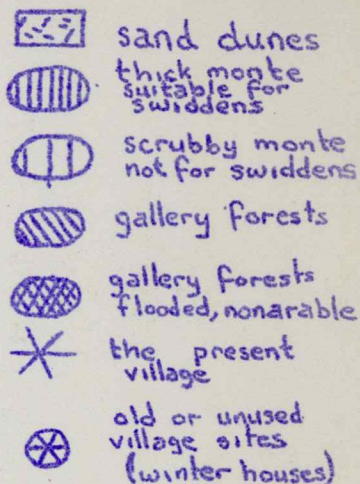 sand dunes
thick monte
suitable for
swiddens
scrubby monte
not for swiddens
gallery forests
gallery forests
flooded, nonarable
the present
village
old or unused
village sites
(winter houses)